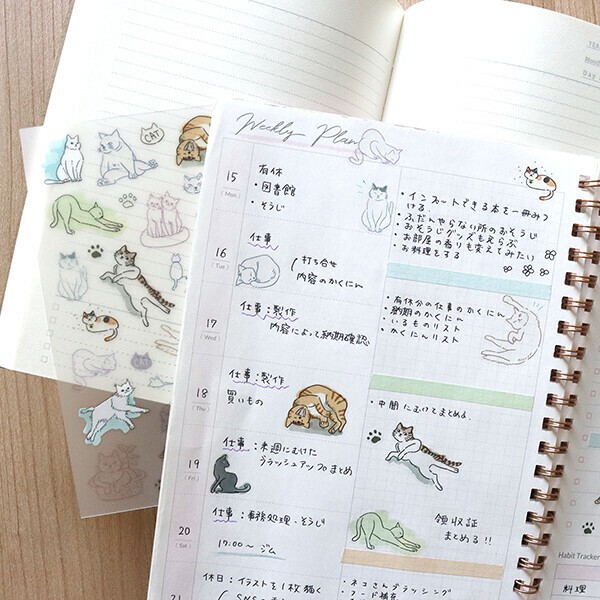 CAT
YEA
Month
DAY
Weekly Plan
15
(Mon)
有休
・図書館
・そうじ
・インプットできる本を一冊みつ
ける。
・ふだんやらない所のおそうじ
・おそうじグッズもえらぶ
・お部屋の香りも変えてみたい
・お料理をする
16
(Tue)
仕事
打ち合せ
内容のかくにん
17
(Wed)
仕事:製作
内容によって納期確認
・有休分の仕事のかくにん
・納期のかくにん
・いるものリスト
・かくにんリスト
18
(Thu)
仕事:製作
買いもの
・中間にむけてまとめる。
19
(Fri)
仕事:来週にむけた
ブラッシュアップまとめ
20
(Sat)
仕事:事務処理、そうじ
17:00〜ジム
領収証
まとめる!!
21
休日:イラストを1枚描く
・ネコさんブラッシング
・フード補充
Habit Tracker
料理